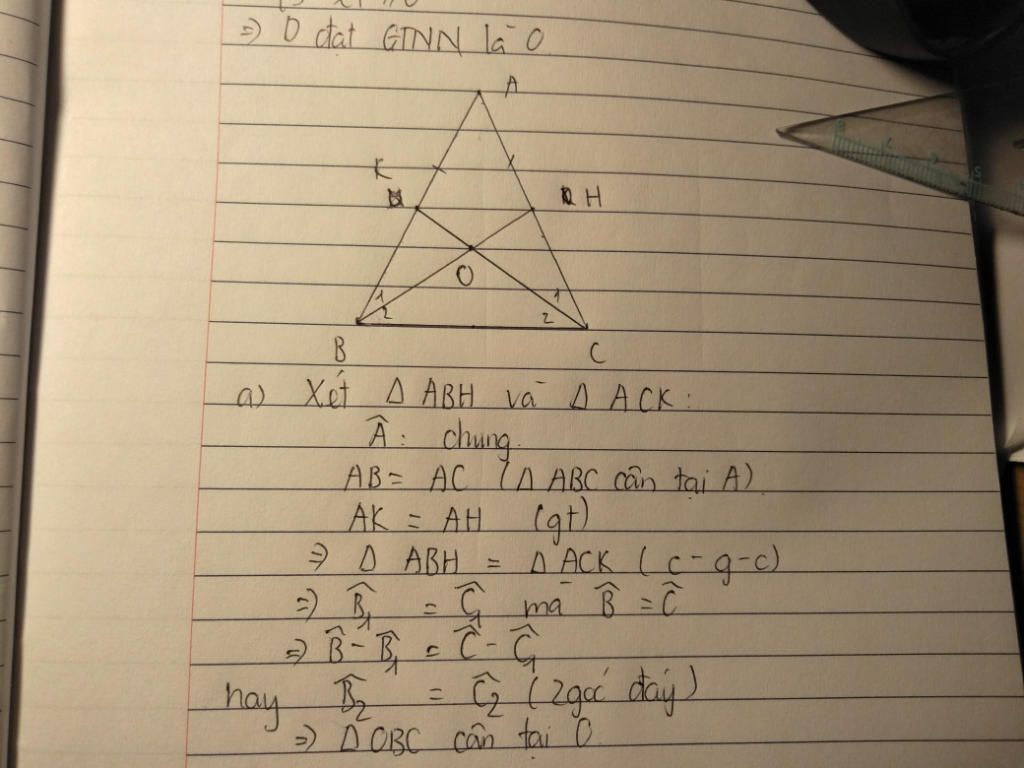 => D đạt GTNN là 0
A
K
H
O
1
2
1
2
B
C
a) Xét Δ ABH và Δ ACK:
Â: chung.
AB = AC (Δ ABC cân tại A)
AK = AH (gt)
=> Δ ABH = Δ ACK (c-g-c)
=> B̂₁ = Ĉ₁ mà B̂ = Ĉ
=> B̂ - B̂₁ = Ĉ - Ĉ₁
hay B̂₂ = Ĉ₂ (2 góc đáy)
=> Δ OBC cân tại O